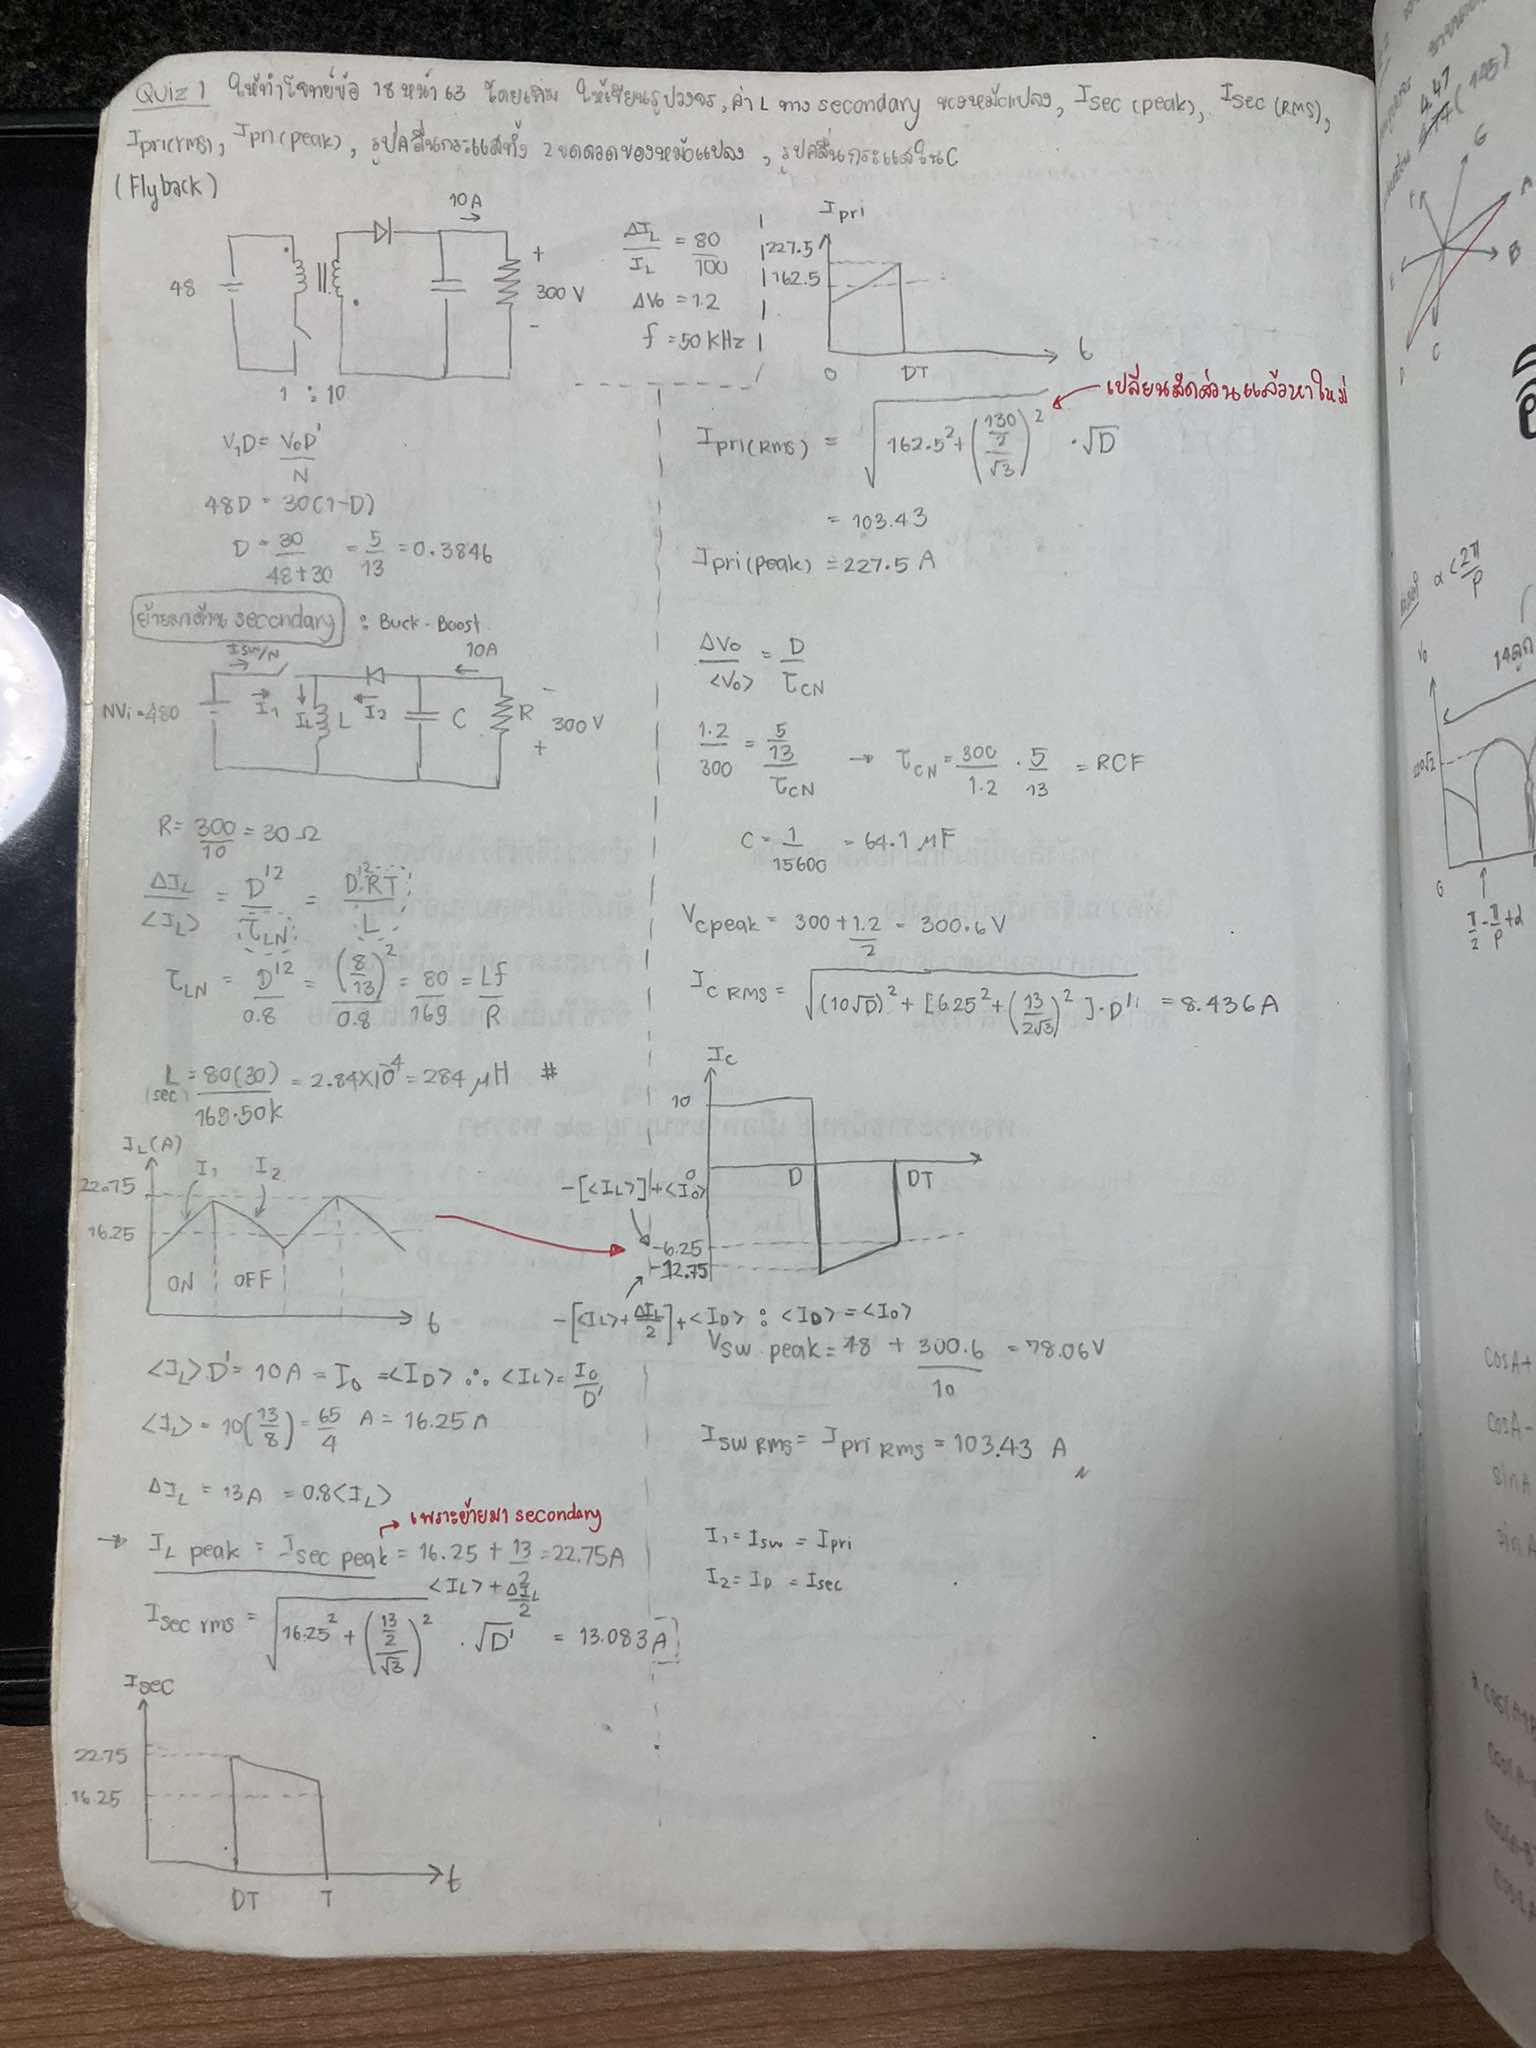 Quiz 1 ให้ทำโจทย์ข้อ 18 หน้า 63 โดยเพิ่ม ให้เขียนรูปวงจร, ค่า L ทาง secondary ของหม้อแปลง, Isec (peak), Isec (RMS),
Ipri(rms), Ipri(peak), รูปคลื่นกระแสทั้ง 2 ขดลวดของหม้อแปลง, รูปคลื่นกระแสใน C
(Flyback)
10A
48
+
300 V
-
1 : 10
ΔIL/IL = 80/100
ΔVo = 1.2
f = 50 kHz
V1D = VoD'/N
48D = 30(1-D)
D = 30/(48+30) = 5/13 = 0.3846
ย้ายมาด้าน secondary : Buck-Boost
Isw/N
10A
NVi = 480
I1
IL
L
I2
C
R
-
300 V
+
R = 300/10 = 30 Ω
ΔIL/<IL> = D'²/τLN = D'²RT/L
τLN = D'²/0.8 = (8/13)²/0.8 = 80/169 = Lf/R
L(sec) = 80(30)/169·50k = 2.84×10⁻⁴ = 284 μH #
IL(A)
I1
I2
22.75
16.25
ON
OFF
t
<IL>D' = 10A = Io = <ID> ∴ <IL> = Io/D'
<IL> = 10(13/8) = 65/4 A = 16.25 A
ΔIL = 13A = 0.8<IL>
เพราะย้ายมา secondary
→ IL peak = Isec peak = 16.25 + 13/2 = 22.75A
<IL> + ΔIL/2
Isec rms = √(16.25² + ((13/2)/√3)²) · √D' = 13.083 A
Isec
22.75
16.25
DT
T
t
Ipri
227.5
162.5
0
DT
t
เปลี่ยนสัดส่วนแล้วหาใหม่
Ipri(RMS) = √(162.5² + ((130/2)/√3)²) · √D
= 103.43
Ipri(peak) = 227.5 A
ΔVo/<Vo> = D/τCN
1.2/300 = (5/13)/τCN → τCN = 300/1.2 · 5/13 = RCF
C = 1/15600 = 64.1 μF
Vcpeak = 300 + 1.2/2 = 300.6 V
IC RMS = √((10√D)² + [6.25² + (13/2√3)²]·D') = 8.436 A
Ic
10
0
D
DT
-[<IL>] + <Io>
-6.25
-12.75
-[<IL> + ΔIL/2] + <ID> : <ID> = <Io>
Vsw peak = 48 + 300.6/10 = 78.06 V
Isw RMS = Ipri RMS = 103.43 A
I1 = Isw = Ipri
I2 = ID = Isec
4.47
G
A
B
F
E
C
D
α < 2π/p
Vo
14 ลูก
220√2
0
π/2 - π/p + α
cosA+
cosA-
sinA